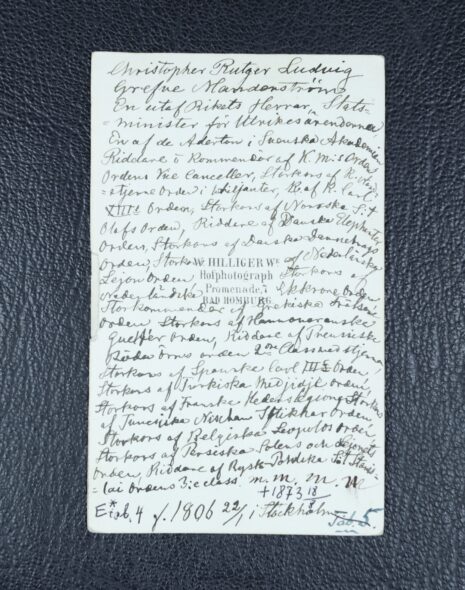 Christopher Rutger Ludvig
Grefve Manderström
En utaf Rikets Herrar, Stats=
=minister för Utrikesärendena
En af de Aderton i Svenska Akademien
Riddare o Kommendör af K. M:ts Orden
Ordens Vice Canceller, Storkors af K. Nord
=stjerne Orden i briljanter, R. af K. Carl
XIII:s Orden, Storkors af Norska S:t
Olafs Orden, Riddare af Danska Elephants
Orden, Storkors af Danska Dannebrogs
Orden, Storkors af Nederländska
Wwe HILLIGER
Hofphotograph
Promenade, 7
BAD HOMBURG
Lejon Orden Storkors af
Nederländska Ekkrone Orden
Storkommendör af Grekiska Frälsare
Orden Storkors af Hannoveranska
Guelfer Orden, Riddare af Preussiska
Röda Örns orden 2:dra Class med stjerna,
Storkors af Spanska Carl III:s Orden,
Storkors af Turkiska Medjidje orden,
Storkors af Franska Hederslegion, Storkors
af Tunesiska Nischan Iftikhar Orden
Storkors af Belgiska Leopolds orden
Storkors af Persiska Solens och Lejonets
Orden, Riddare af Rysk Polska S:t Stanis
=lai Ordens 3:e class. m. m. m. m.
+ 1873 18/8
4 f. 1806 22/1 i Stockholm
Tab. 5